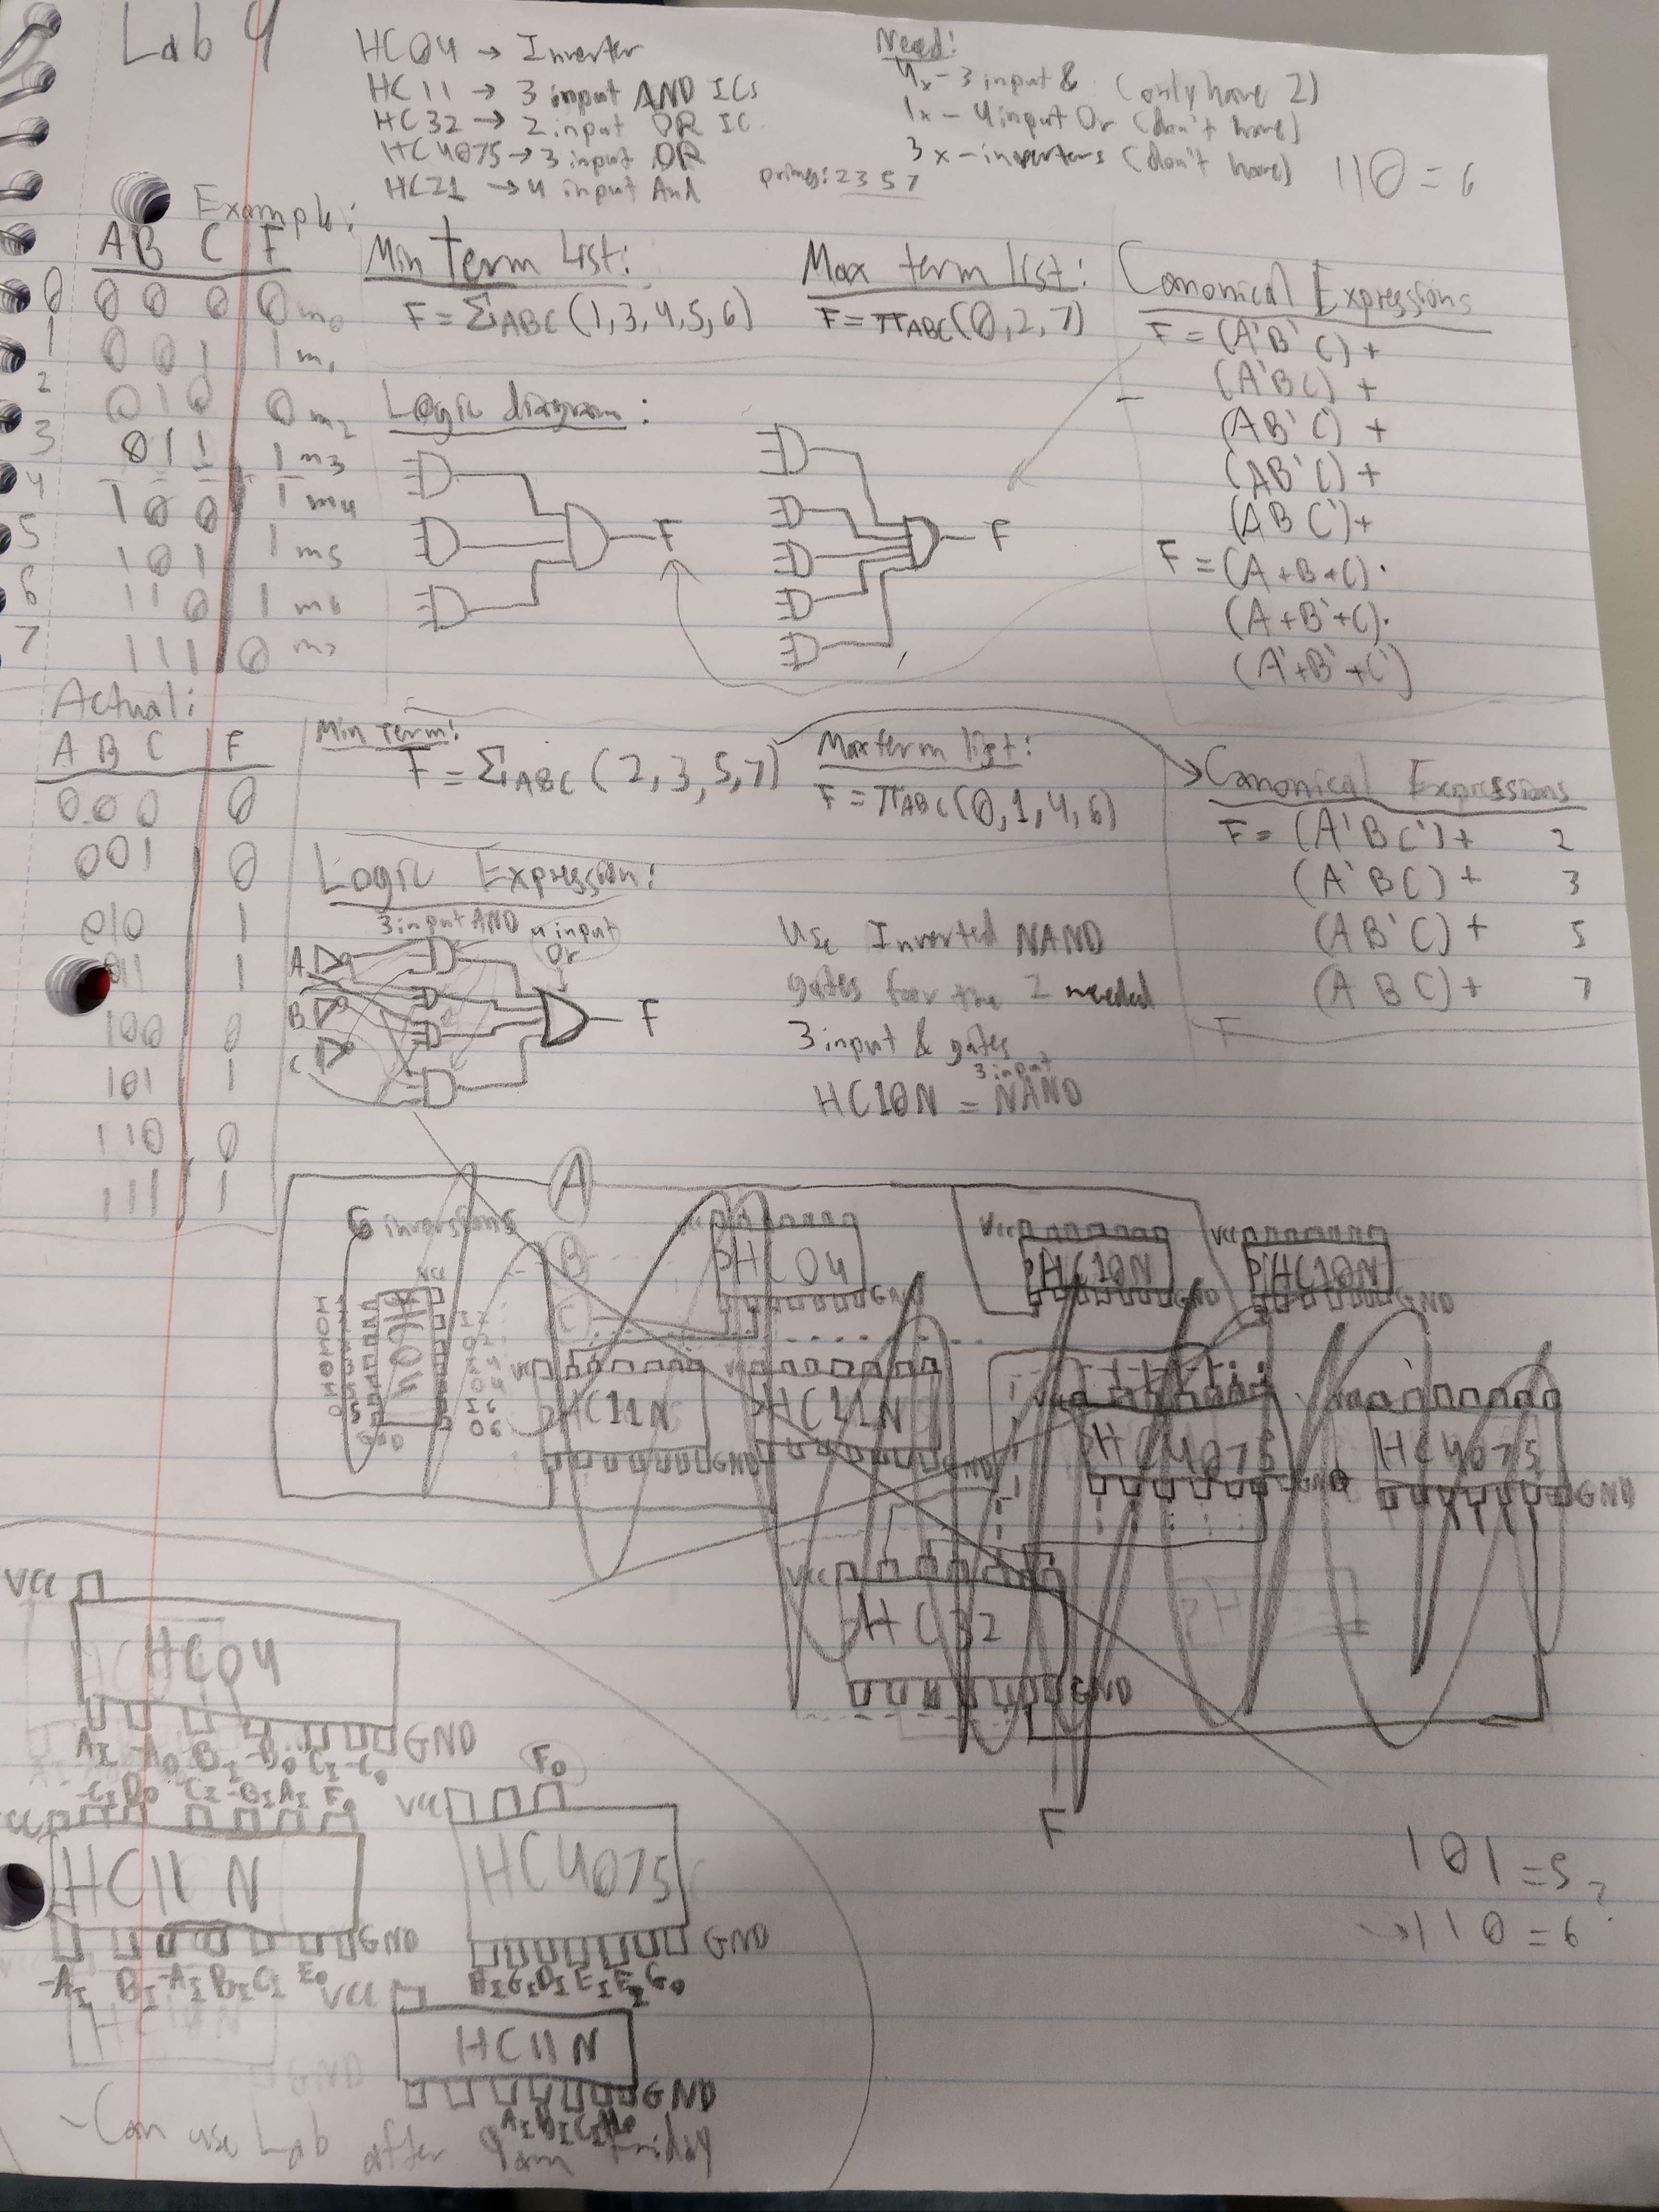 Lab 4
HC04 → Inverter
HC11 → 3 input AND ICs
HC32 → 2 input OR IC
HC4075 → 3 input OR
HC21 → 4 input And
Need:
4x - 3 input & (only have 2)
1x - 4 input Or (don't have)
3x - inverters (don't have)
primes: 2 3 5 7
110 = 6
Example:
A B C F
0 0 0 0 0 m0
1 0 0 1 1 m1
2 0 1 0 0 m2
3 0 1 1 1 m3
4 1 0 0 1 m4
5 1 0 1 1 m5
6 1 1 0 1 m6
7 1 1 1 0 m7
Min term List:
F = ΣABC (1,3,4,5,6)
Max term list:
F = πABC (0,2,7)
Canonical Expressions
F = (A'B'C) +
(A'BC) +
(AB'C') +
(AB'C) +
(ABC') +
F = (A+B+C)·
(A+B'+C)·
(A'+B'+C')
Logic diagram:
F
F
Actual:
A B C F
0 0 0 0
0 0 1 0
0 1 0 1
0 1 1 1
1 0 0 0
1 0 1 1
1 1 0 0
1 1 1 1
Min Term:
F = ΣABC (2,3,5,7)
Maxterm list:
F = πABC (0,1,4,6)
Canonical Expressions
F = (A'BC') + 2
(A'BC) + 3
(AB'C) + 5
(ABC) + 7
F
Logic Expression:
3 input AND
4 input
Or
A
B
C
F
Use Inverted NAND
gates for the 2 needed
3 input & gates
3 input
HC10N = NAND
A
6 inversions
B
C
HC04
GND
VCC
HC10N
GND
VCC
HC10N
GND
HC04
GND
VCC
HC11N
GND
VCC
HC11N
GND
HC4075
HC4075
GND
VCC
HC32
GND
F
VCC
HC04
GND
AI -AO BI -BO CI -CO
-CI DO CI -BI AI FO
HC11N
GND
-AI BI -AI BI CI EO
VCC
FO
HC4075
GND
VCC
HC11N
GND
101 = 5
→110 = 6
?
- Can use Lab after 9am Friday